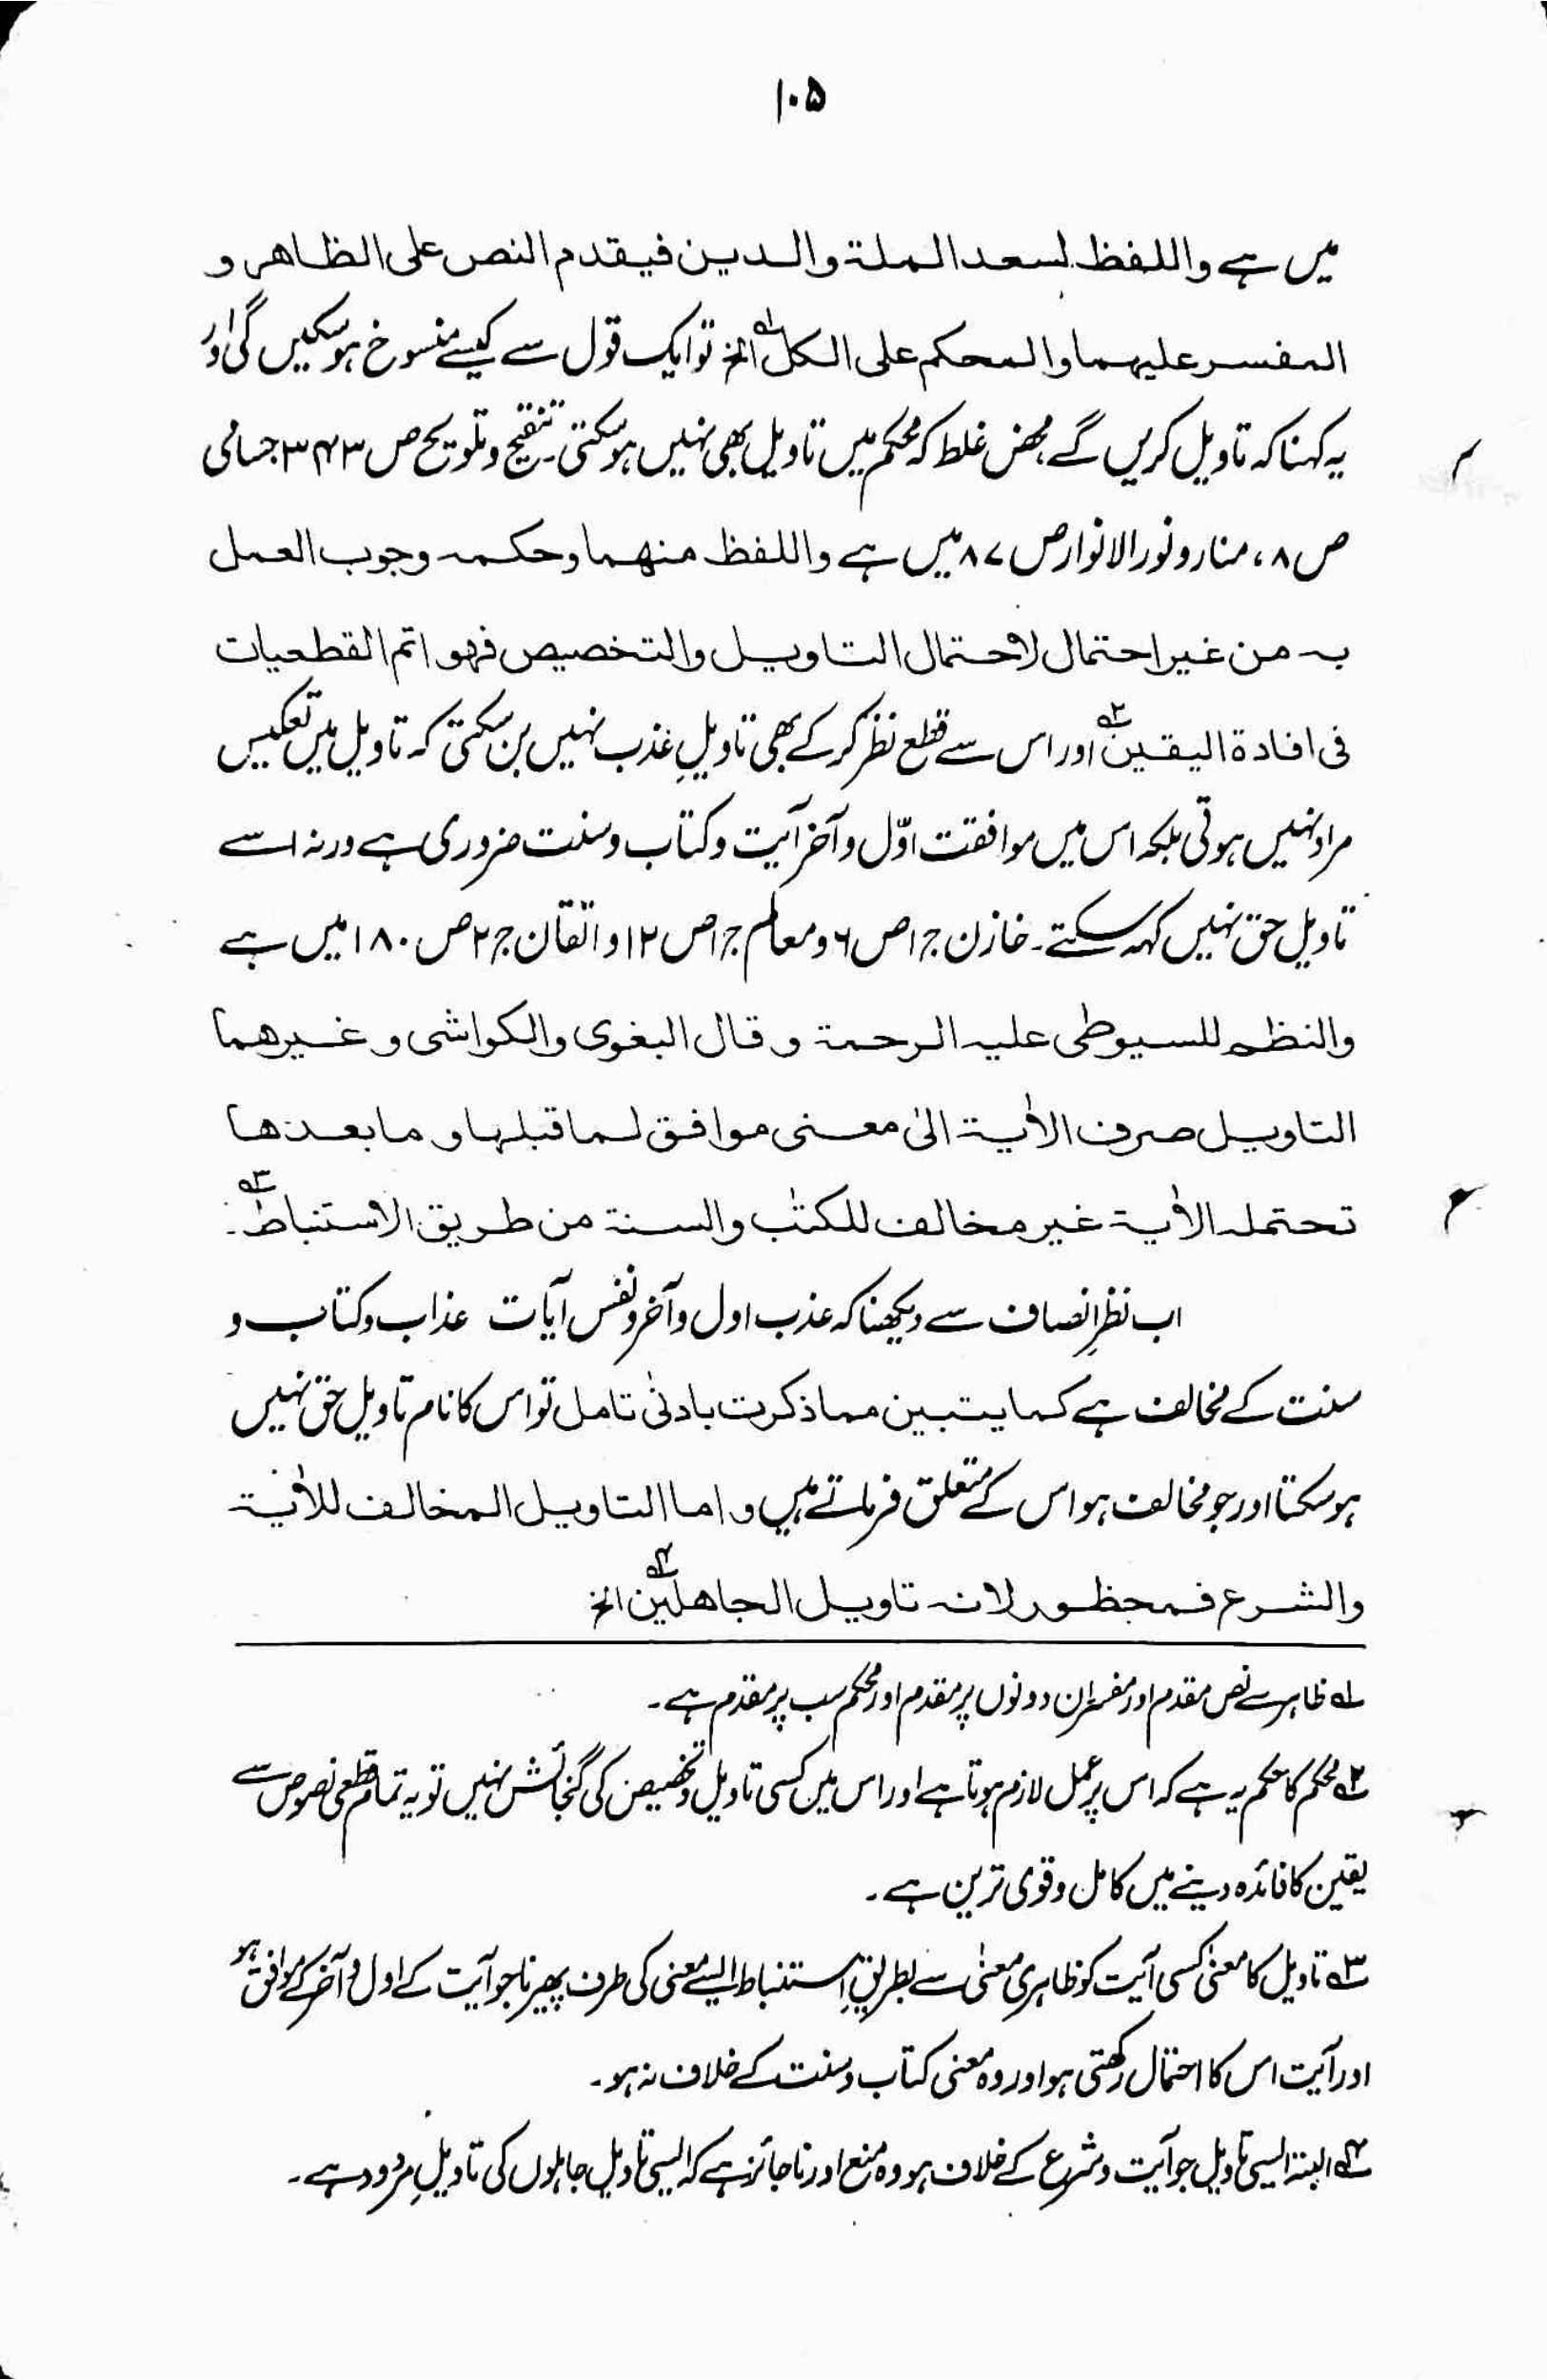 ۱۰۵
میں ہے واللفظ لسعد الملۃ والدین فیقدم النص علی الظاھر و
المفسر علیھما والمحکم علی الکل۱؎ الخ تو ایک قول سے کیسے منسوخ ہو سکیں گی اور
یہ کہنا کہ تاویل کریں گے محض غلط کہ محکم میں تاویل بھی نہیں ہو سکتی۔ تنقیح و تلویح ص ۳۴۳ حسامی
ص ۸، منار و نورالانوار ص ۸۷ میں ہے واللفظ منھما وحکمہ وجوب العمل
بہ من غیر احتمال لاحتمال التاویل والتخصیص فہو اتم القطعیات
فی افادۃ الیقین۲؎ اور اس سے قطع نظر کر کے بھی تاویلِ عذب نہیں بن سکتی کہ تاویل میں تعکیس
مراد نہیں ہوتی بلکہ اس میں موافقت اوّل و آخر آیت و کتاب و سنت ضروری ہے ورنہ اسے
تاویل حق نہیں کہہ سکتے۔ خازن جر۱ ص ۶ و معالم جر۱ ص ۱۲ و اتقان جر۲ ص ۱۸۰ میں ہے
والنظم للسیوطی علیہ الرحمۃ و قال البغوی والکواشی و غیرھما
التاویل صرف الاٰیۃ الیٰ معنی موافق لما قبلہا و ما بعدھا
تحتملہ الاٰیۃ غیر مخالف للکتٰب والسنۃ من طریق الاستنباط۳؎۔
اب نظرِ انصاف سے دیکھنا کہ عذب اول و آخر و نفس آیات عذاب و کتاب و
سنت کے مخالف ہے کما یتبین مما ذکرت بادنیٰ تامل تو اس کا نام تاویل حق نہیں
ہو سکتا اور جو مخالف ہو اس کے متعلق فرماتے ہیں و اما التاویل المخالف للاٰیۃ
والشرع فمحظور لانہ تاویل الجاھلین۴؎ الخ
۱؎ ظاہر سے نص مقدم اور مفسر ان دونوں پر مقدم اور محکم سب پر مقدم ہے۔
۲؎ محکم کا حکم یہ ہے کہ اس پر عمل لازم ہوتا ہے اور اس میں کسی تاویل و تخصیص کی گنجائش نہیں تو یہ تمام قطعی نصوص سے
یقین کا فائدہ دینے میں کامل و قوی ترین ہے۔
۳؎ تاویل کا معنیٰ کسی آیت کو ظاہری معنیٰ سے بطریقِ استنباط ایسے معنی کی طرف پھیرنا جو آیت کے اول و آخر کے موافق ہو
اور آیت اس کا احتمال رکھتی ہو اور وہ معنی کتاب و سنت کے خلاف نہ ہو۔
۴؎ البتہ ایسی تاویل جو آیت و شرع کے خلاف ہو وہ منع اور ناجائز ہے کہ ایسی تاویل جاہلوں کی تاویلِ مردود ہے۔